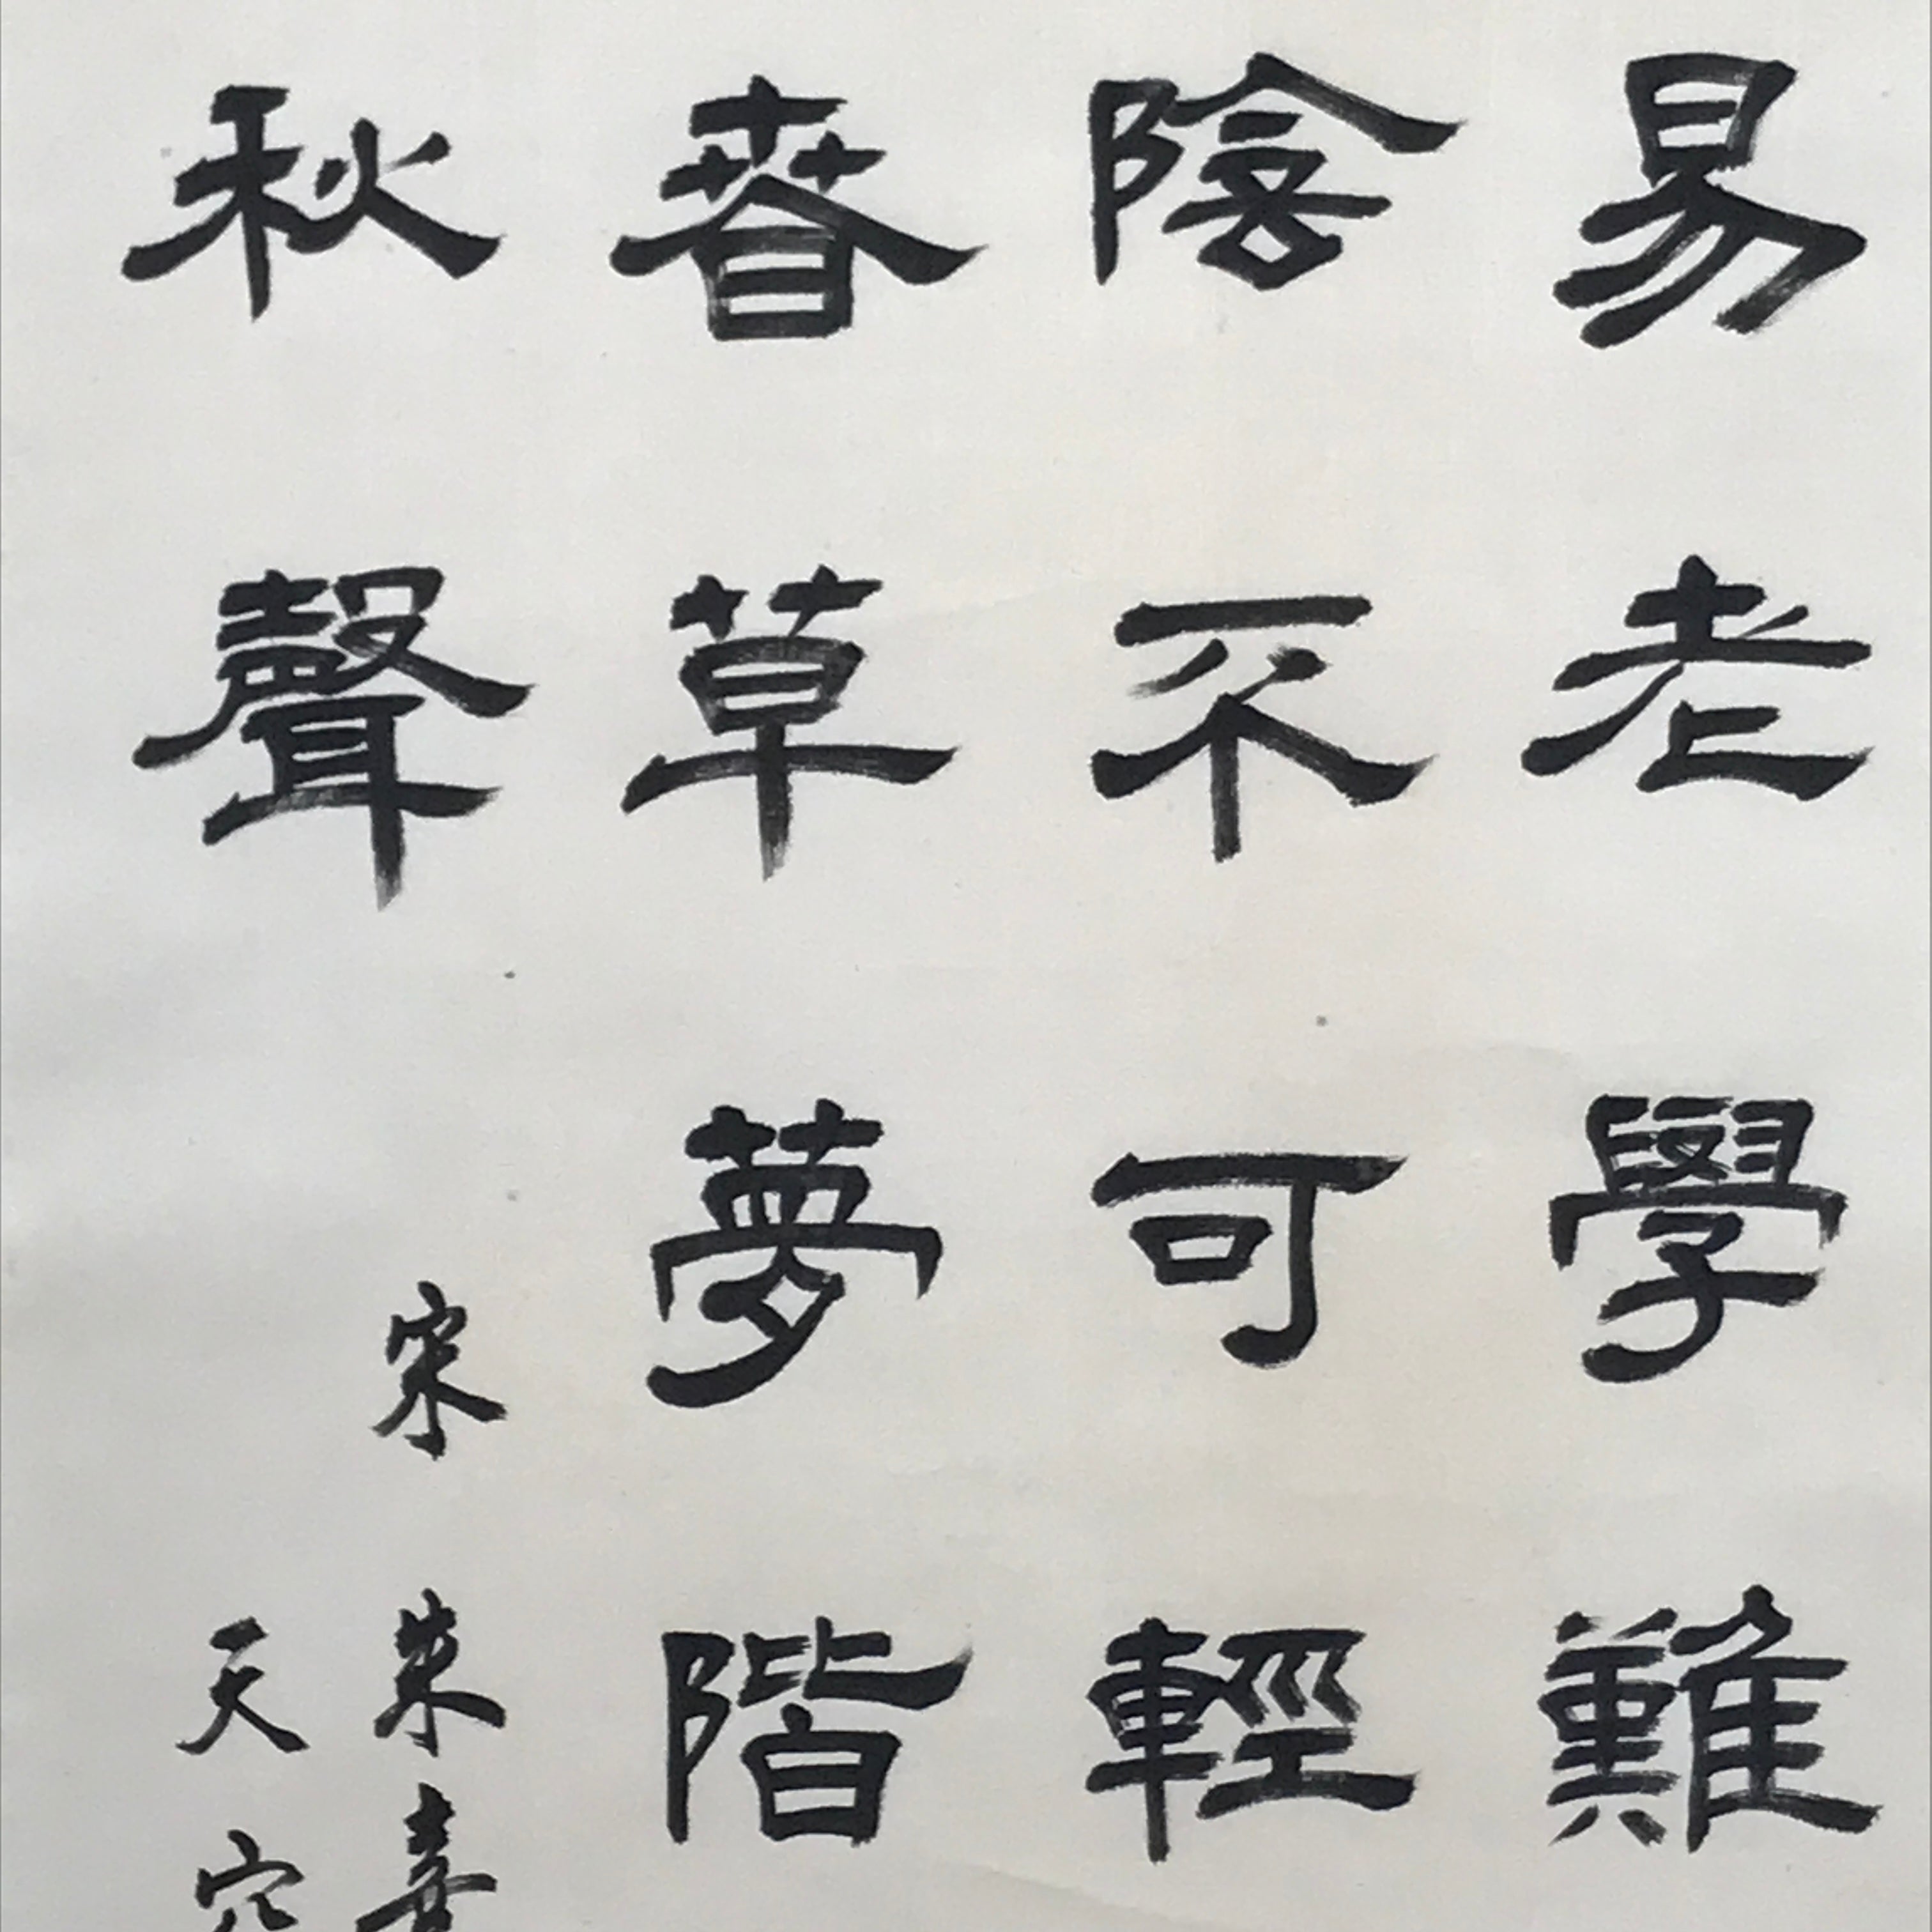 易老學難
陰不可輕
春草夢階
秋聲
宋朱熹
天